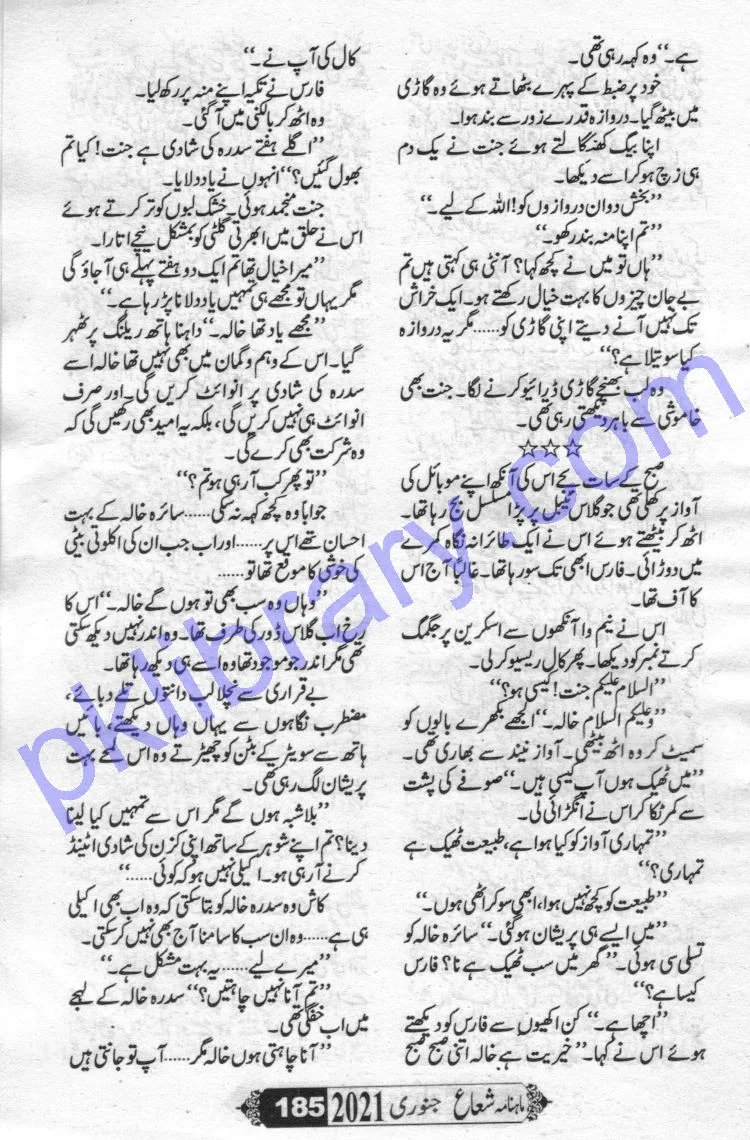 ہے۔“ وہ کہہ رہی تھی۔
خود پر ضبط کے پہرے بٹھاتے ہوئے وہ گاڑی
میں بیٹھ گیا۔ دروازہ قدرے زور سے بند ہوا۔
اپنا بیگ کھنگالتے ہوئے جنت نے یک دم
ہی زچ ہو کر اسے دیکھا۔
”بخش دو ان دروازوں کو! اللہ کے لیے۔“
”تم اپنا منہ بند رکھو۔“
”ہاں تو میں نے کچھ کہا؟ آنٹی ہی کہتی ہیں تم
بے جان چیزوں کا بہت خیال رکھتے ہو۔ ایک خراش
تک نہیں آنے دیتے اپنی گاڑی کو...... مگر یہ دروازہ
کیا سوتیلا ہے؟“
وہ لب بھینچے گاڑی ڈرائیو کرنے لگا۔ جنت بھی
خاموشی سے باہر دیکھتی رہی تھی۔
☆☆☆
صبح کے سات بجے اس کی آنکھ اپنے موبائل کی
آواز پر کھلی تھی جو گلاس ٹیبل پر پڑا مسلسل بج رہا تھا۔
اٹھ کر بیٹھتے ہوئے اس نے ایک طائرانہ نگاہ کمرے
میں دوڑائی۔ فارس ابھی تک سو رہا تھا۔ غالباً آج اس
کا آف تھا۔
اس نے نیم وا آنکھوں سے اسکرین پر جگمگ
کرتے نمبر کو دیکھا۔ پھر کال ریسیو کر لی۔
”السلام علیکم جنت! کیسی ہو؟“
”وعلیکم السلام خالہ۔“ الجھے بکھرے بالوں کو
سمیٹ کر وہ اٹھ بیٹھی۔ آواز نیند سے بھاری تھی۔
”میں ٹھیک ہوں آپ کیسی ہیں۔“ صوفے کی پشت
سے کمر ٹکا کر اس نے انگڑائی لی۔
”تمہاری آواز کو کیا ہوا ہے، طبیعت ٹھیک ہے
تمہاری؟“
”طبیعت کو کچھ نہیں ہوا، ابھی سو کر اٹھی ہوں۔“
”میں ایسے ہی پریشان ہو گئی۔“ سائرہ خالہ کو
تسلی سی ہوئی۔ ”گھر میں سب ٹھیک ہے نا؟ فارس
کیسا ہے؟“
”اچھا ہے۔“ کن اکھیوں سے فارس کو دیکھتے
ہوئے اس نے کہا۔ ”خیریت ہے خالہ اتنی صبح صبح
کال کی آپ نے۔“
فارس نے تکیہ اپنے منہ پر رکھ لیا۔
وہ اٹھ کر بالکنی میں آ گئی۔
”اگلے ہفتے سدرہ کی شادی ہے جنت! کیا تم
بھول گئیں؟“ انہوں نے یاد دلایا۔
جنت منجمد ہوئی۔ خشک لبوں کو تر کرتے ہوئے
اس نے حلق میں ابھرتی گلٹی کو بمشکل نیچے اتارا۔
”میرا خیال تھا تم ایک دو ہفتے پہلے ہی آ جاؤ گی
مگر یہاں تو مجھے ہی تمہیں یاد دلانا پڑ رہا ہے۔“
”مجھے یاد تھا خالہ۔“ داہنا ہاتھ ریلنگ پر ٹھہر
گیا۔ اس کے وہم و گمان میں بھی نہیں تھا خالہ اسے
سدرہ کی شادی پر انوائٹ کریں گی۔ اور صرف
انوائٹ ہی نہیں کریں گی، بلکہ یہ امید بھی رکھیں گی کہ
وہ شرکت بھی کرے گی۔
”تو پھر کب آ رہی ہو تم؟“
جواباً وہ کچھ کہہ نہ سکی...... سائرہ خالہ کے بہت
احسان تھے اس پر...... اور اب جب ان کی اکلوتی بیٹی
کی خوشی کا موقع تھا تو......
”وہاں وہ سب بھی تو ہوں گے خالہ۔“ اس کا
رخ اب گلاس ڈور کی طرف تھا۔ وہ اندر نہیں دیکھ سکتی
تھی مگر اندر جو موجود تھا وہ اسے ہی دیکھ رہا تھا۔
بے قراری سے نچلا لب دانتوں تلے دبائے،
مضطرب نگاہوں سے یہاں وہاں دیکھتے، بائیں
ہاتھ سے سویٹر کے بٹن کو چھیڑتے وہ اس لمحے بہت
پریشان لگ رہی تھی۔
”بلاشبہ ہوں گے مگر اس سے تمہیں کیا لینا
دینا؟ تم اپنے شوہر کے ساتھ اپنی کزن کی شادی اٹینڈ
کرنے آ رہی ہو۔ اکیلی نہیں ہو کہ کوئی......“
کاش وہ سدرہ خالہ کو بتا سکتی کہ وہ اب بھی اکیلی
ہی ہے...... وہ ان سب کا سامنا آج بھی نہیں کر سکتی۔
”میرے لیے...... یہ بہت مشکل ہے۔“
”تم آنا نہیں چاہتیں؟“ سدرہ خالہ کے لہجے
میں اب خفگی تھی۔
”آنا چاہتی ہوں خالہ مگر...... آپ تو جانتی ہیں
ماہنامہ شعاع جنوری 2021 185
pklibrary.com